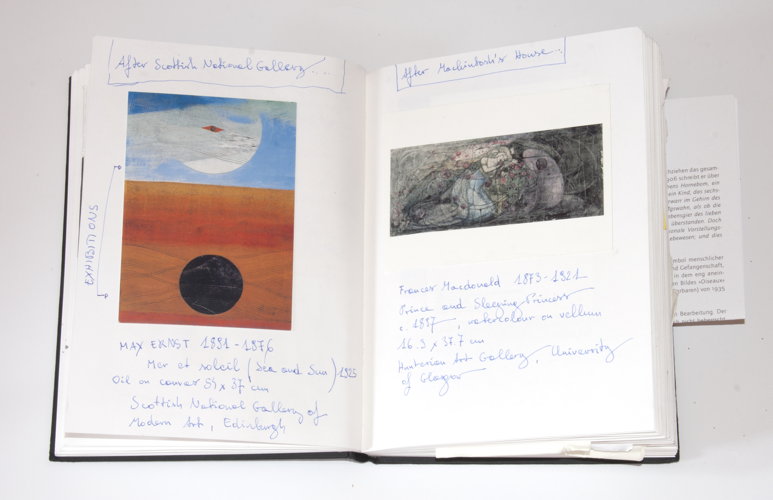 After Scottish National Gallery....
EXHIBITIONS
MAX ERNST 1891-1976
Mer et soleil (Sea and Sun) 1925
Oil on canvas 54 x 37 cm
Scottish National Gallery of
Modern Art, Edinburgh
After Machintosh's House...
Frances Macdonald 1873-1921
Prince and Sleeping Princess
c. 1897, watercolour on vellum
16.5 x 37.7 cm
Hunterian Art Gallery, University
of Glasgow
ziehen das gesam-
schreibt er über
Hornebom, ein
ein Kind, das sechs-
im Gehirn des
als ob die
des lieben
überstanden. Doch
Vorstellungs-
und dies
menschlicher
nd Gefangenschaft,
in dem eng anein-
en Bildes »Oiseaux«
von 1935
Bearbeitung. Der